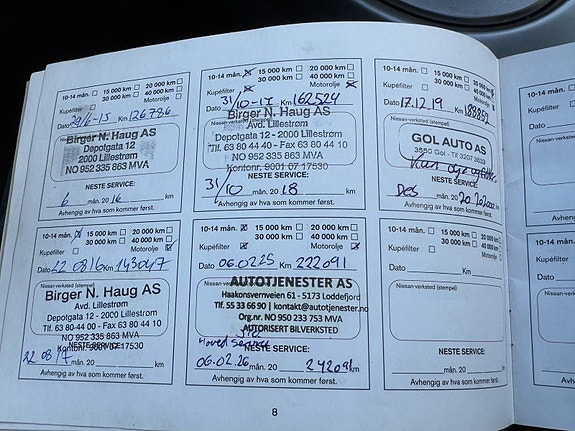 10-14 mån. 15 000 km 20 000 km
30 000 km 40 000 km
Kupéfilter Motorolje
Dato 29/6-15 Km 126786
Nissan-verksted (stempel)
Birger N. Haug AS
Depotgata 12
2000 Lillestrøm
NO 952 335 863 MVA
NESTE SERVICE:
6 mån. 20 16 km
Avhengig av hva som kommer først.
10-14 mån. 15 000 km 20 000 km
30 000 km 40 000 km
Kupéfilter Motorolje
Dato 31/10-17 Km 162524
Birger N. Haug AS
Avd. Lillestrøm
Depotgata 12 - 2000 Lillestrøm
Tlf. 63 80 44 00 - Fax 63 80 44 10
NO 952 335 863 MVA
Kontonr. 9001 07 17530
NESTE SERVICE:
31/10 mån. 20 18 km
Avhengig av hva som kommer først.
10-14 mån. 15 000 km 20 000 km
30 000 km 40 000 km
Kupéfilter Motorolje
Dato 17.12.19 Km 188852
Nissan-verksted (stempel)
GOL AUTO AS
3550 Gol - Tlf 3207
Kun olje og filter
NESTE SERVICE:
Des mån. 20 2020 km
Avhengig av hva som kommer først.
10-14 mån. 15 000 km 20 000 km
30 000 km 40 000 km
Kupéfilter Motorolje
Dato 22 08 16 Km 143047
Nissan-verksted (stempel)
Birger N. Haug AS
Avd. Lillestrøm
Depotgata 12 - 2000 Lillestrøm
Tlf. 63 80 44 00 - Fax 63 80 44 10
NO 952 335 863 MVA
NESTE SERVICE:
Kontonr. 9001 07 17530
22 08 17 mån. 20 km
Avhengig av hva som kommer først.
10-14 mån. 15 000 km 20 000 km
30 000 km 40 000 km
Kupéfilter Motorolje
Dato 06.02 25 Km 222091
AUTOTJENESTER AS
Haakonsvernveien 61 - 5173 Loddefjord
Tlf. 55 33 66 90 | kontakt@autotjenester.no
Org.nr. NO 950 233 753 MVA
AUTORISERT BILVERKSTED
Hoved service
NESTE SERVICE:
06.02.26 mån. 20 242091 km
Avhengig av hva som kommer først.
10-14 mån. 15 000 km 20 000 km
30 000 km 40 000 km
Kupéfilter Motorolje
Dato Km
Nissan-verksted (stempel)
NESTE SERVICE:
mån. 20 km
Avhengig av hva som kommer først.
10-14 mån.
Kupéfilter
Dato
Nissan-verksted
Avhengig
10-14 mån.
Kupéfilter
Dato
Nissan-verk
Avhengig
8